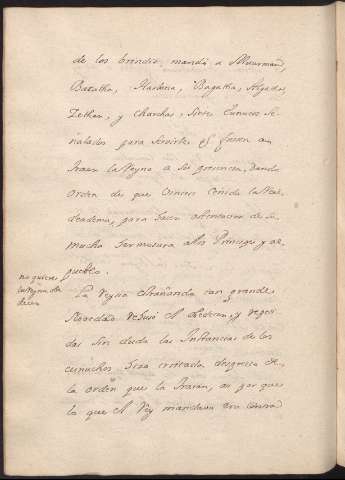 de los brindis, mandó a Mauman,
Bazatha, Harbona, Bagatha, Abgatha,
Zethar, y Charchas, Siete Eunucos Se-
ñalados para Servirle q.e fuesen a
traer la Reyna a su presencia, Dando
orden de que viniese ceñida la Real
diadema, para hacer ostentacion de su
mucha hermosura a los Principes y al
pueblo.
no quiere
la Reyna obe
decer
La Reyna estrañando tan grande
Novedad rehusó el obedecer, y
das sin duda las Instancias de los
eunuchos
la orden que la traian, o por que
lo que el Rey mandava era contra